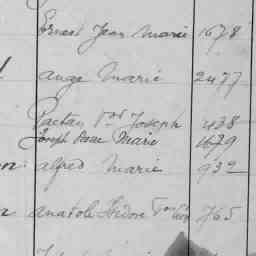 Ernest Jean Marie 1678
Ange Marie 2477
Joseph 438
Joseph Marie 1679
Alfred Marie 932
Anatole Isidore 765